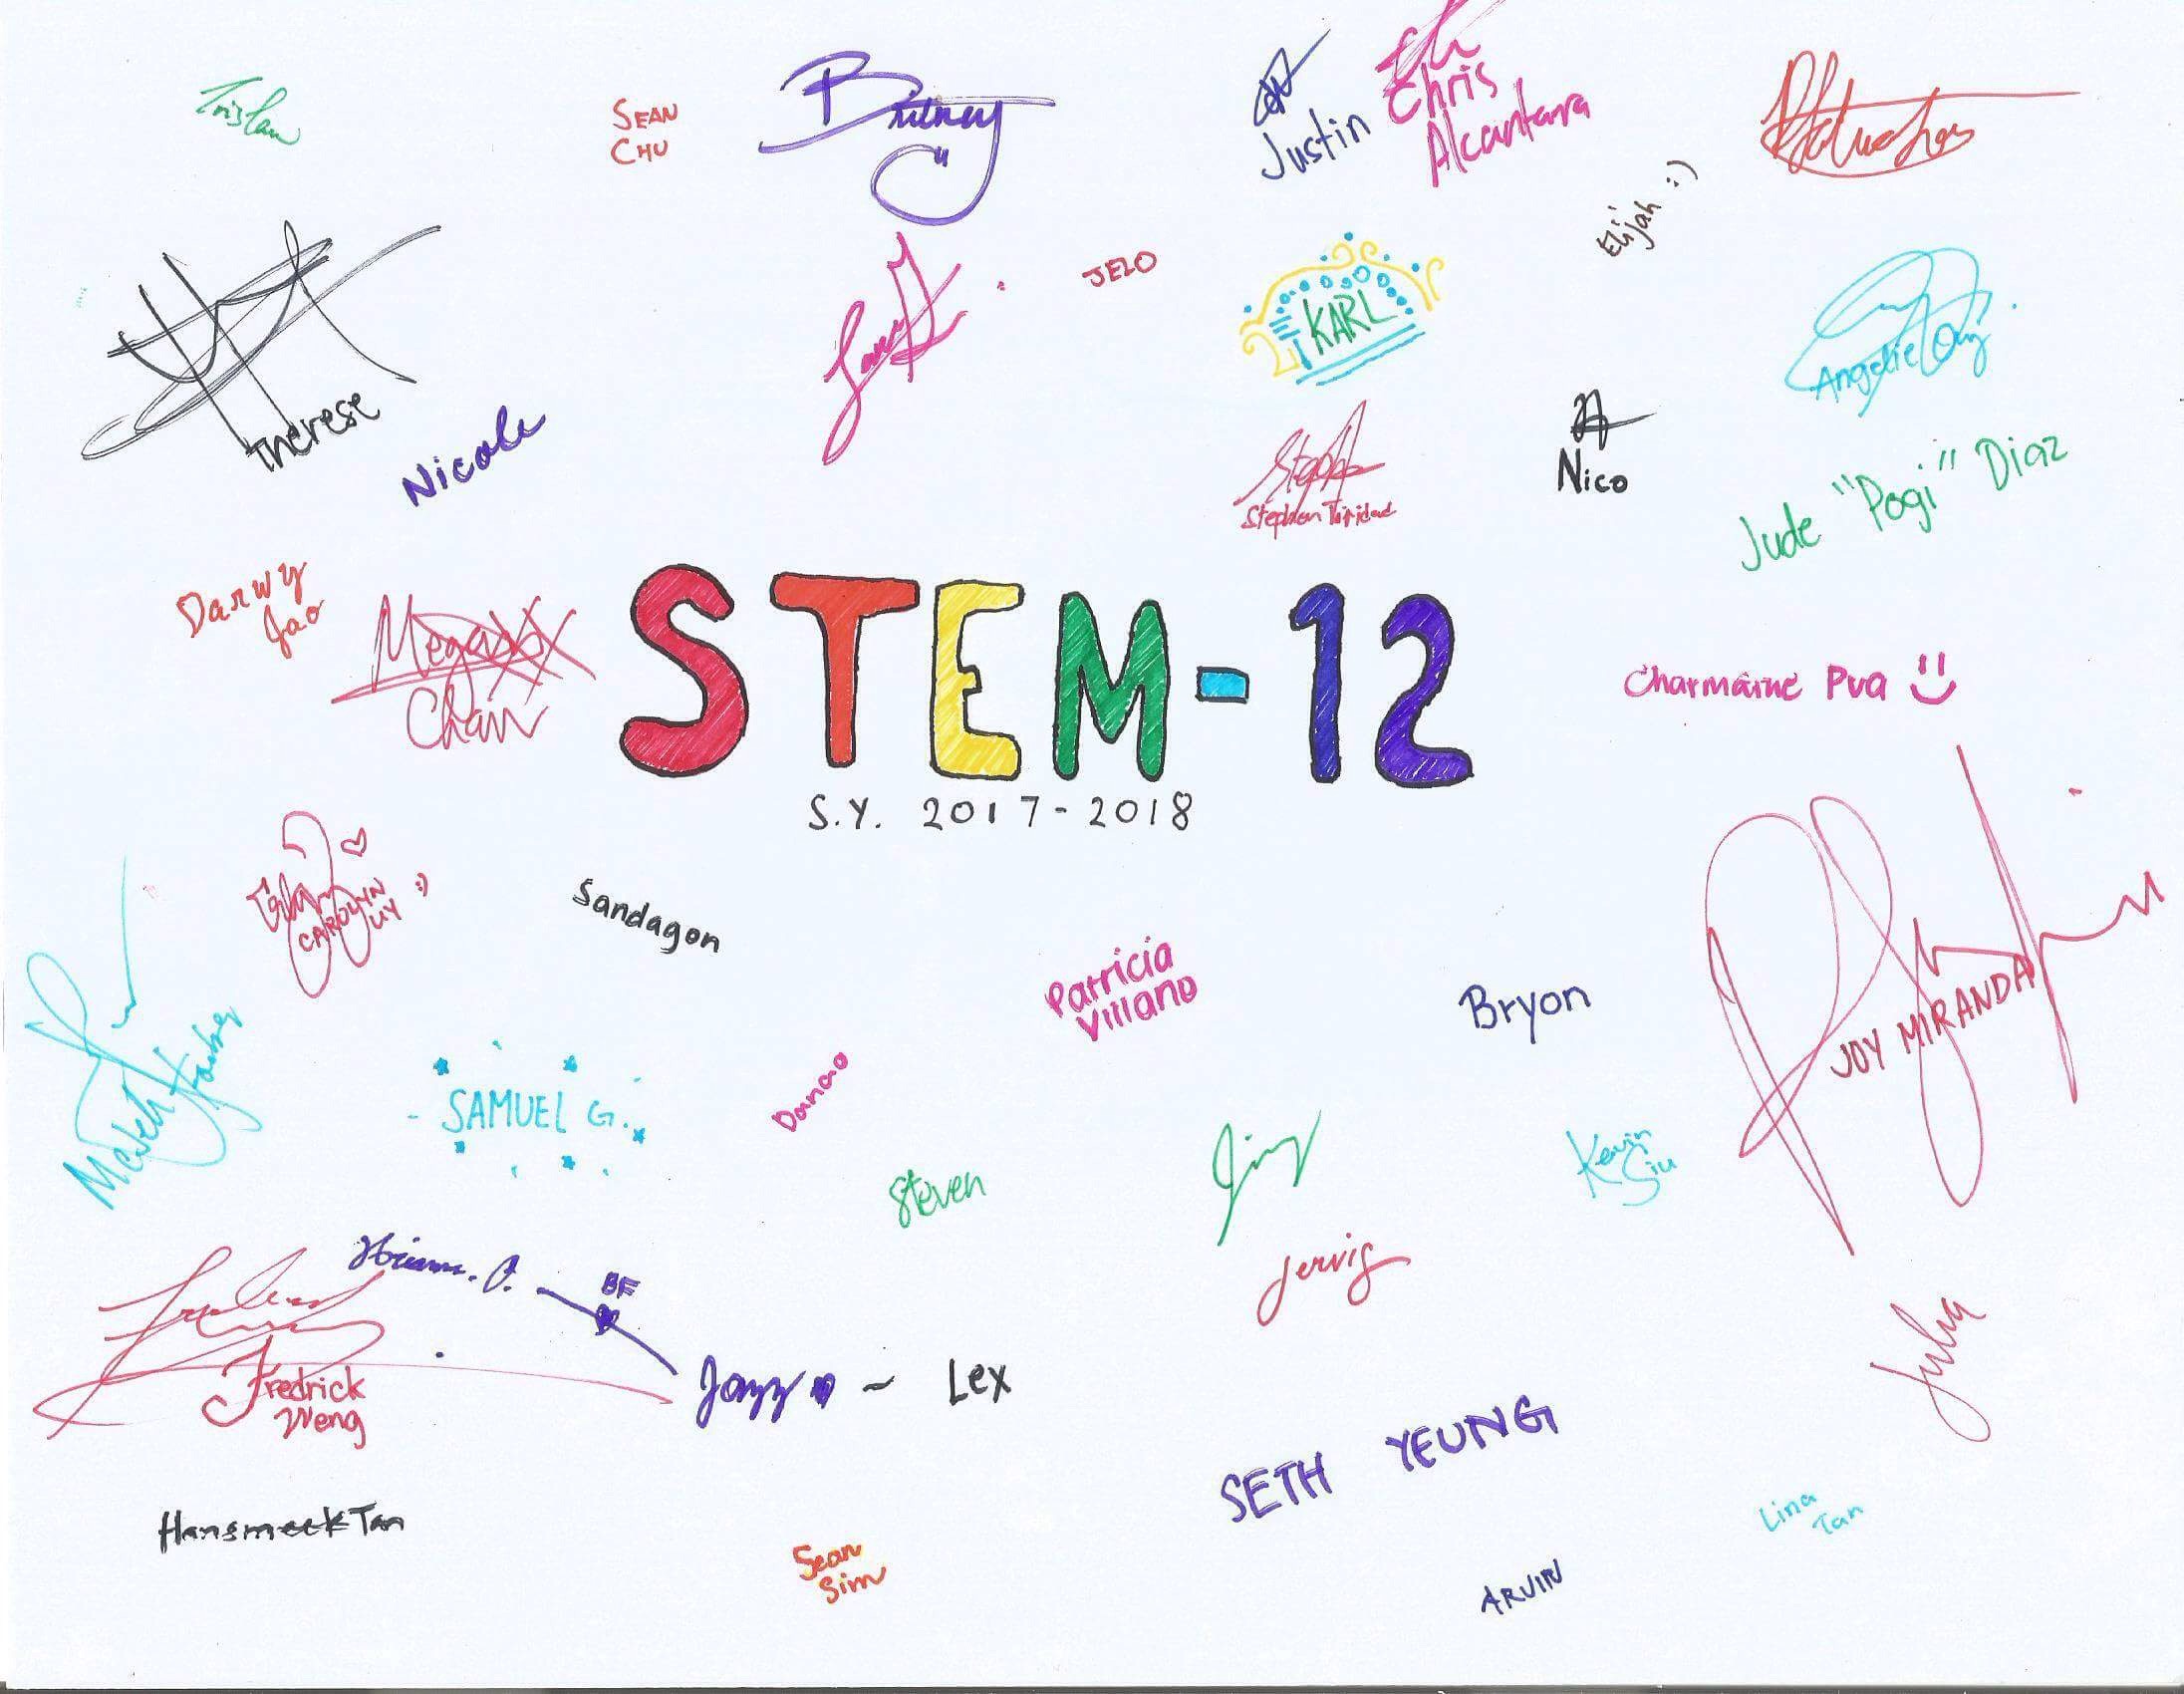 Tristan
SEAN
CHU
Britney
Justin
Chris
Alcantara
Elijah :)
JELO
KARL
Angelie Ong
Therese
Nicole
Stephen Trinidad
Nico
Jude "Pogi" Diaz
Darwy
Jao
Megan
Chan
STEM-12
S.Y. 2017-2018
Charmaine Pua
CAROLYN
UY :)
Sandagon
Patricia
Villano
Bryon
JOY MIRANDA
- SAMUEL G.
Danao
Steven
Kevin
Siu
BF
Jervis
Julia
Fredrick
Weng
Jazz ~ Lex
SETH YEUNG
Hansmeek Tan
Sean
Sim
Lina
Tan
ARVIN